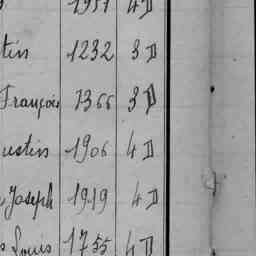 1951 4 D
tin 1232 3 D
François 1366 3 D
ustin 1906 4 D
Joseph 1919 4 D
Louis 1755 4 D